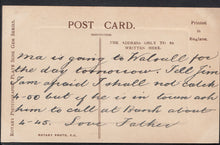 POST CARD.
THE ADDRESS ONLY TO BE
WRITTEN HERE.
Printed in
England.
ROTARY PHOTOGRAPHIC PLATE SUNK GEM SERIES.
Ma is going to Walsall for
the day tomorrow. Tell Jim
I am afraid I shall not catch
4-50 but if he is in town ask
him to call at Bank about
4-45. Love Father
ROTARY PHOTO, E.C.